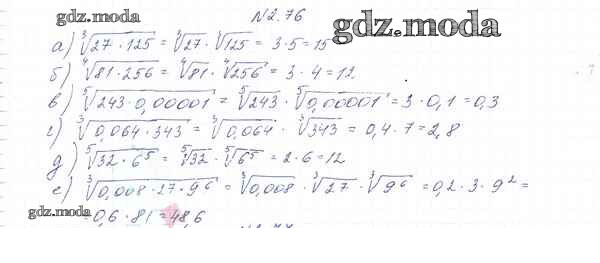 gdz.moda
№2.76
gdz.moda
а) ∛(27·125) = ∛27 · ∛125 = 3·5=15
б) ∜(81·256) = ∜81 · ∜256 = 3·4=12
в) ⁵√(243·0,00001) = ⁵√243 · ⁵√0,00001 = 3·0,1=0,3
г) ∛(0,064·343) = ∛0,064 · ∛343 = 0,4·7=2,8
д) ⁵√(32·6⁵) = ⁵√32 · ⁵√6⁵ = 2·6=12
е) ∛(0,008·27·9⁶) = ∛0,008 · ∛27 · ∛9⁶ = 0,2·3·9² =
gdz.moda
= 0,6·81=48,6